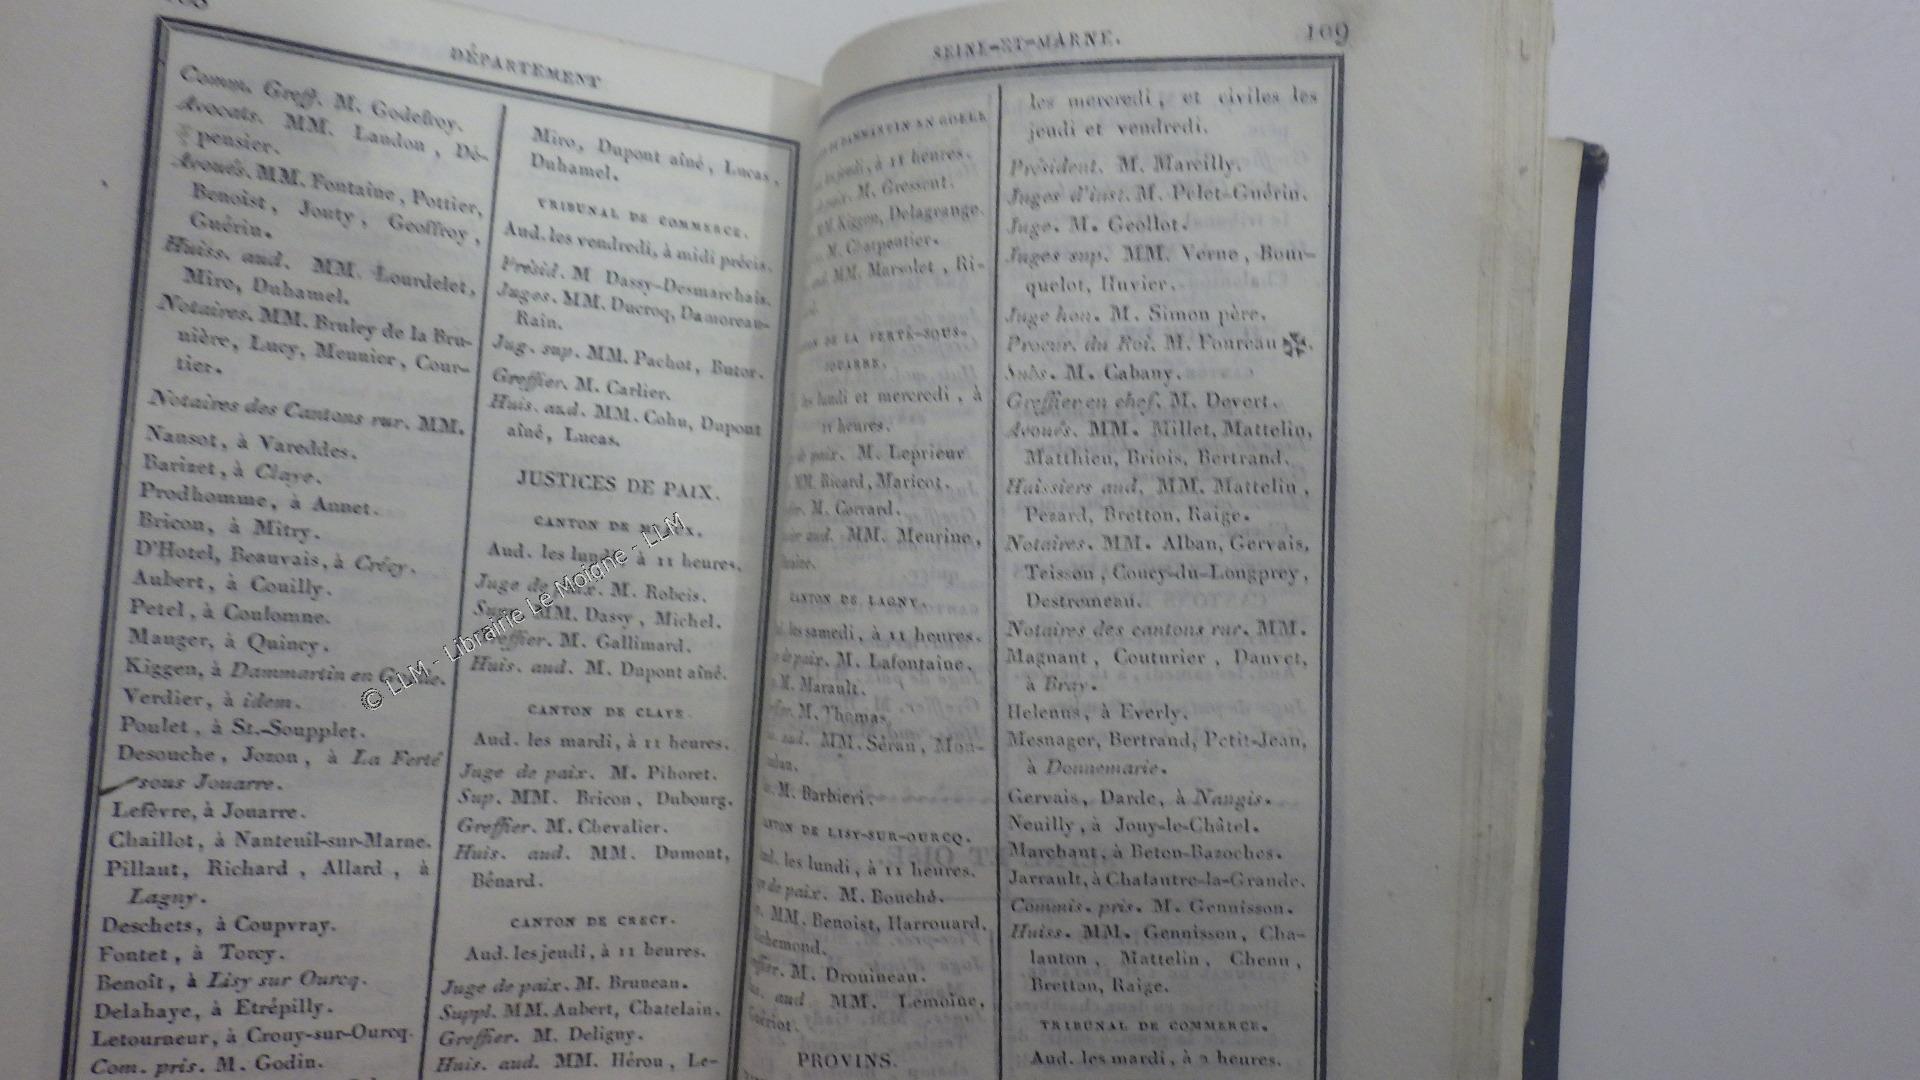 DÉPARTEMENT
Comm. Greff. M. Godefroy.
Avocats. MM. Laudon, Dé-
pensier.
Avoués. MM. Fontaine, Pottier,
Benoist, Jouty, Geoffroy,
Guérin.
Huiss. aud. MM. Lourdelet,
Miro, Duhamel.
Notaires. MM. Bruley de la Bru-
nière, Lucy, Meunier, Cour-
tier.
Notaires des Cantons rur. MM.
Nansot, à Vareddes.
Barizet, à Claye.
Prodhomme, à Annet.
Bricon, à Mitry.
D'Hotel, Beauvais, à Crécy.
Aubert, à Couilly.
Petel, à Coulomne.
Mauger, à Quincy.
Kiggen, à Dammartin en Goelle.
Verdier, à idem.
Poulet, à St.-Soupplet.
Desouche, Jozon, à La Ferté
sous Jouarre.
Lefèvre, à Jouarre.
Chaillot, à Nanteuil-sur-Marne.
Pillaut, Richard, Allard, à
Lagny.
Deschets, à Coupvray.
Fontet, à Torcy.
Benoît, à Lisy sur Ourcq.
Delahaye, à Etrépilly.
Letourneur, à Crouy-sur-Ourcq.
Com. pris. M. Godin.
Miro, Dupont aîné, Lucas,
Duhamel.
TRIBUNAL DE COMMERCE.
Aud. les vendredi, à midi précis.
Présid. M Dassy-Desmarchais.
Juges. MM. Ducroq, Damoreau-
Rain.
Jug. sup. MM. Pachot, Butor.
Greffier. M. Carlier.
Huis. aud. MM. Cohu, Dupont
aîné, Lucas.
JUSTICES DE PAIX.
CANTON DE MEAUX.
Aud. les lundi, à 11 heures.
Juge de paix. M. Robcis.
Sup. MM. Dassy, Michel.
Greffier. M. Gallimard.
Huis. aud. M. Dupont aîné.
CANTON DE CLAYE.
Aud. les mardi, à 11 heures.
Juge de paix. M. Pihoret.
Sup. MM. Bricon, Dubourg.
Greffier. M. Chevalier.
Huis. aud. MM. Dumont,
Bénard.
CANTON DE CRECY.
Aud. les jeudi, à 11 heures.
Juge de paix. M. Bruneau.
Suppl. MM. Aubert, Chatelain.
Greffier. M. Deligny.
Huis. aud. MM. Hérou, Le-
© LLM - Librairie Le Moigne - LLM
SEINE-ET-MARNE. 109
DE DAMMARTIN EN GOELE
les jeudi, à 11 heures.
M. Gressent.
MM. Kiggen, Delagrange.
M. Charpentier.
MM. Marsolet, Ri-
DE LA FERTÉ-SOUS-
JOUARRE.
les lundi et mercredi, à
11 heures.
de paix. M. Leprieur
MM. Ricard, Maricot.
M. Corrard.
aud. MM. Meurine,
CANTON DE LAGNY.
les samedi, à 11 heures.
de paix. M. Lafontaine.
M. Marault.
M. Thomas.
aud. MM. Séran, Mon-
M. Barbieri.
CANTON DE LISY-SUR-OURCQ.
Aud. les lundi, à 11 heures.
Juge de paix. M. Bouché.
MM. Benoist, Harrouard.
M. Drouineau.
aud MM. Lemoine,
Guériot.
PROVINS.
les mercredi, et civiles les
jeudi et vendredi.
Président. M. Mareilly.
Juges d'inst. M. Pelet-Guérin.
Juge. M. Geollot.
Juges sup. MM. Verne, Bour-
quelot, Huvier.
Juge hon. M. Simon père.
Procur. du Roi. M. Foureau ✠.
Subs. M. Cabany.
Greffier en chef. M. Devert.
Avoués. MM. Millet, Mattelin,
Matthieu, Briois, Bertrand.
Huissiers aud. MM. Mattelin,
Pezard, Bretton, Raige.
Notaires. MM. Alban, Gervais,
Teisson, Coucy-du-Longprey,
Destromeau.
Notaires des cantons rur. MM.
Magnant, Couturier, Dauvet,
à Bray.
Helenus, à Everly.
Mesnager, Bertrand, Petit-Jean,
à Donnemarie.
Gervais, Darde, à Nangis.
Neuilly, à Jouy-le-Châtel.
Marchant, à Beton-Bazoches.
Jarrault, à Chalautre-la-Grande.
Commis. pris. M. Gennisson.
Huiss. MM. Gennisson, Cha-
lanton, Mattelin, Chenu,
Bretton, Raige.
TRIBUNAL DE COMMERCE.
Aud. les mardi, à 2 heures.